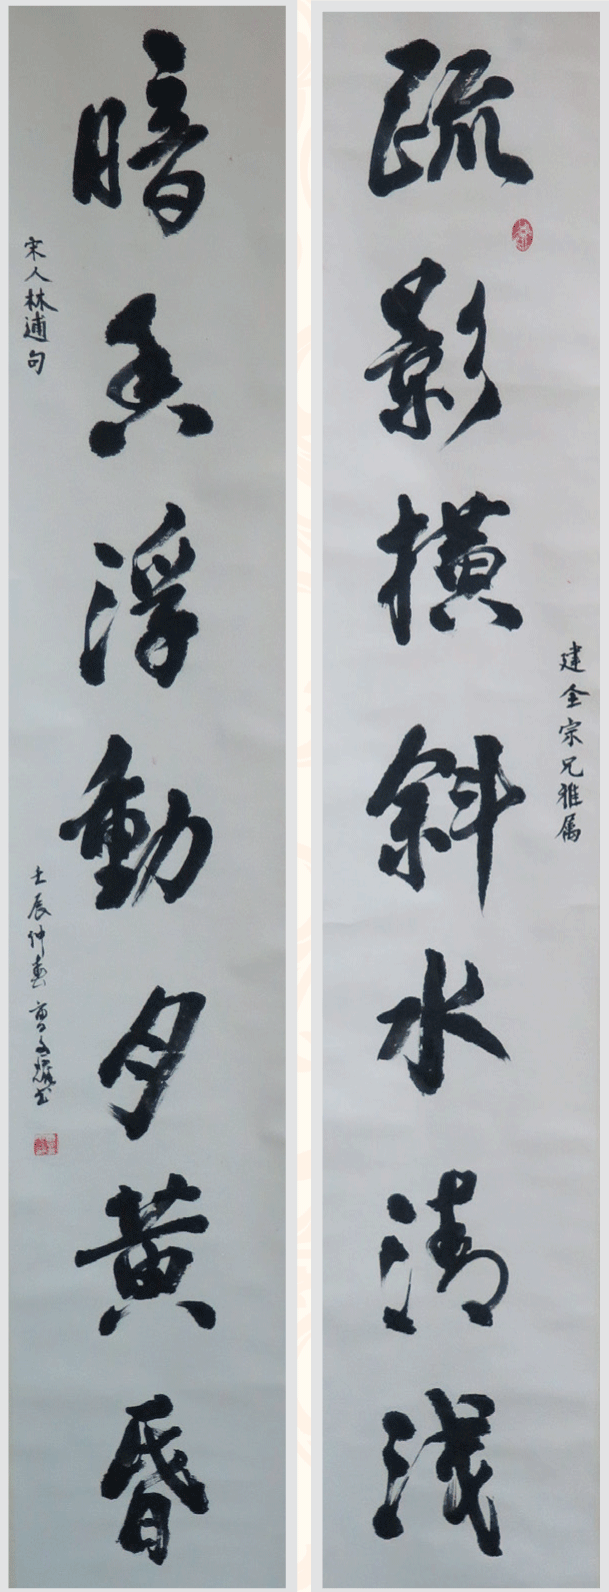 建全宗兄雅属
疏影横斜水清浅
暗香浮動夕黄昏
宋人林逋句
壬辰仲春曹